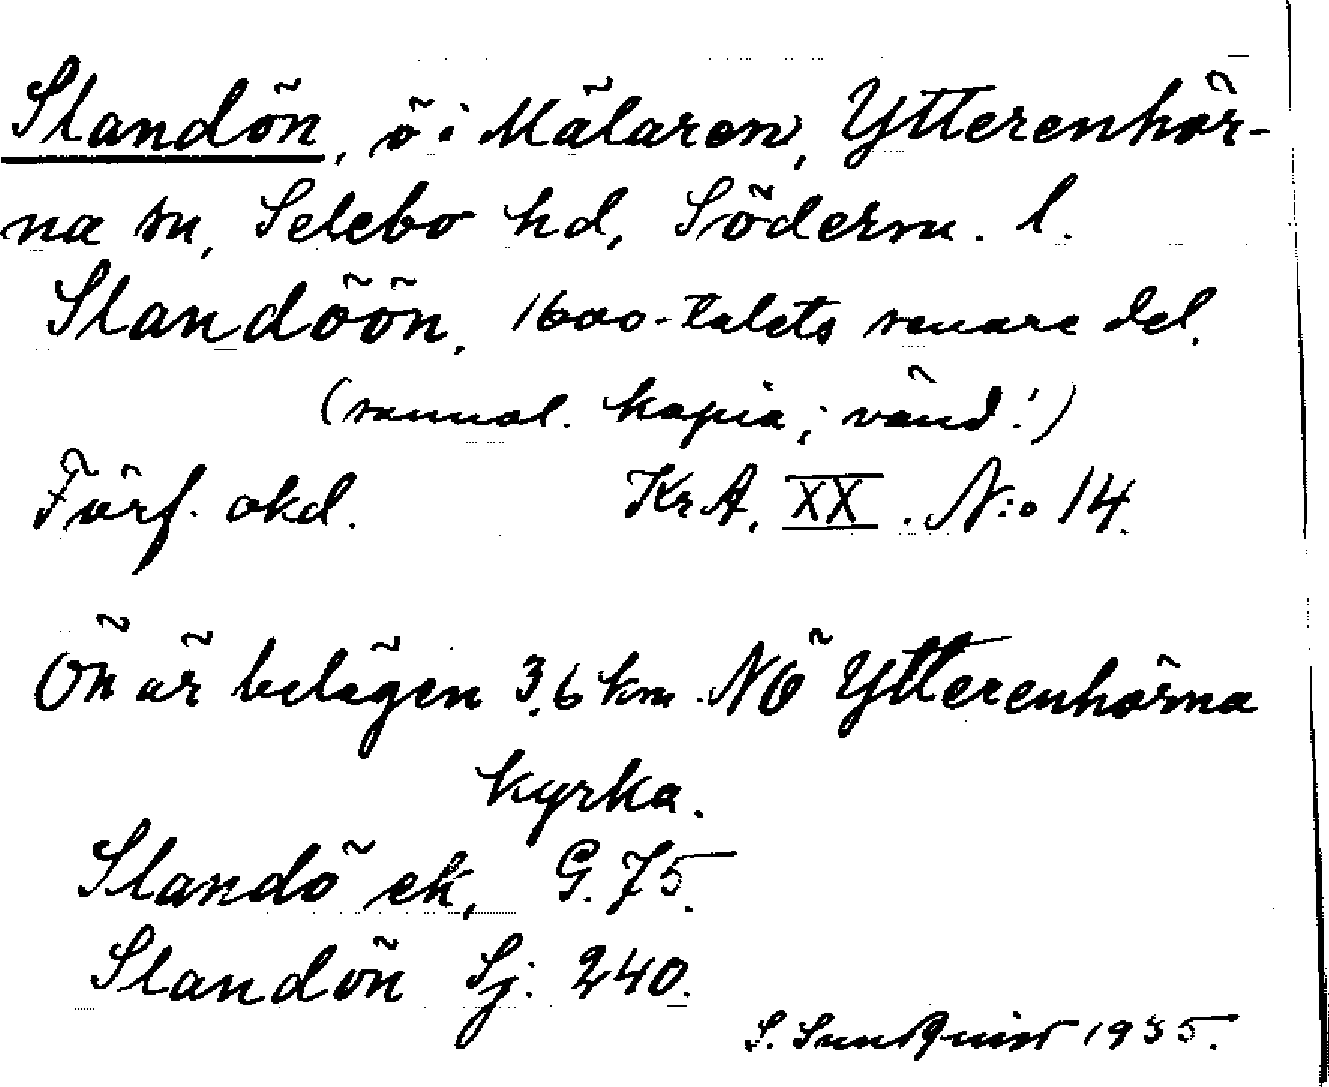 Slandön, ö i Mälaren, Ytterenhör-
na sn, Selebo hd, Söderm. l.
Slandöön, 1600-talets senare del.
(sannol. kopia; vänd!)
Förf. okd. KrA. XX. N:o 14.
Ön är belägen 3,6 km NÖ Ytterenhörna
kyrka.
Slandö ek, G. 75.
Slandön Sj. 240.
S. Sundquist 1935.